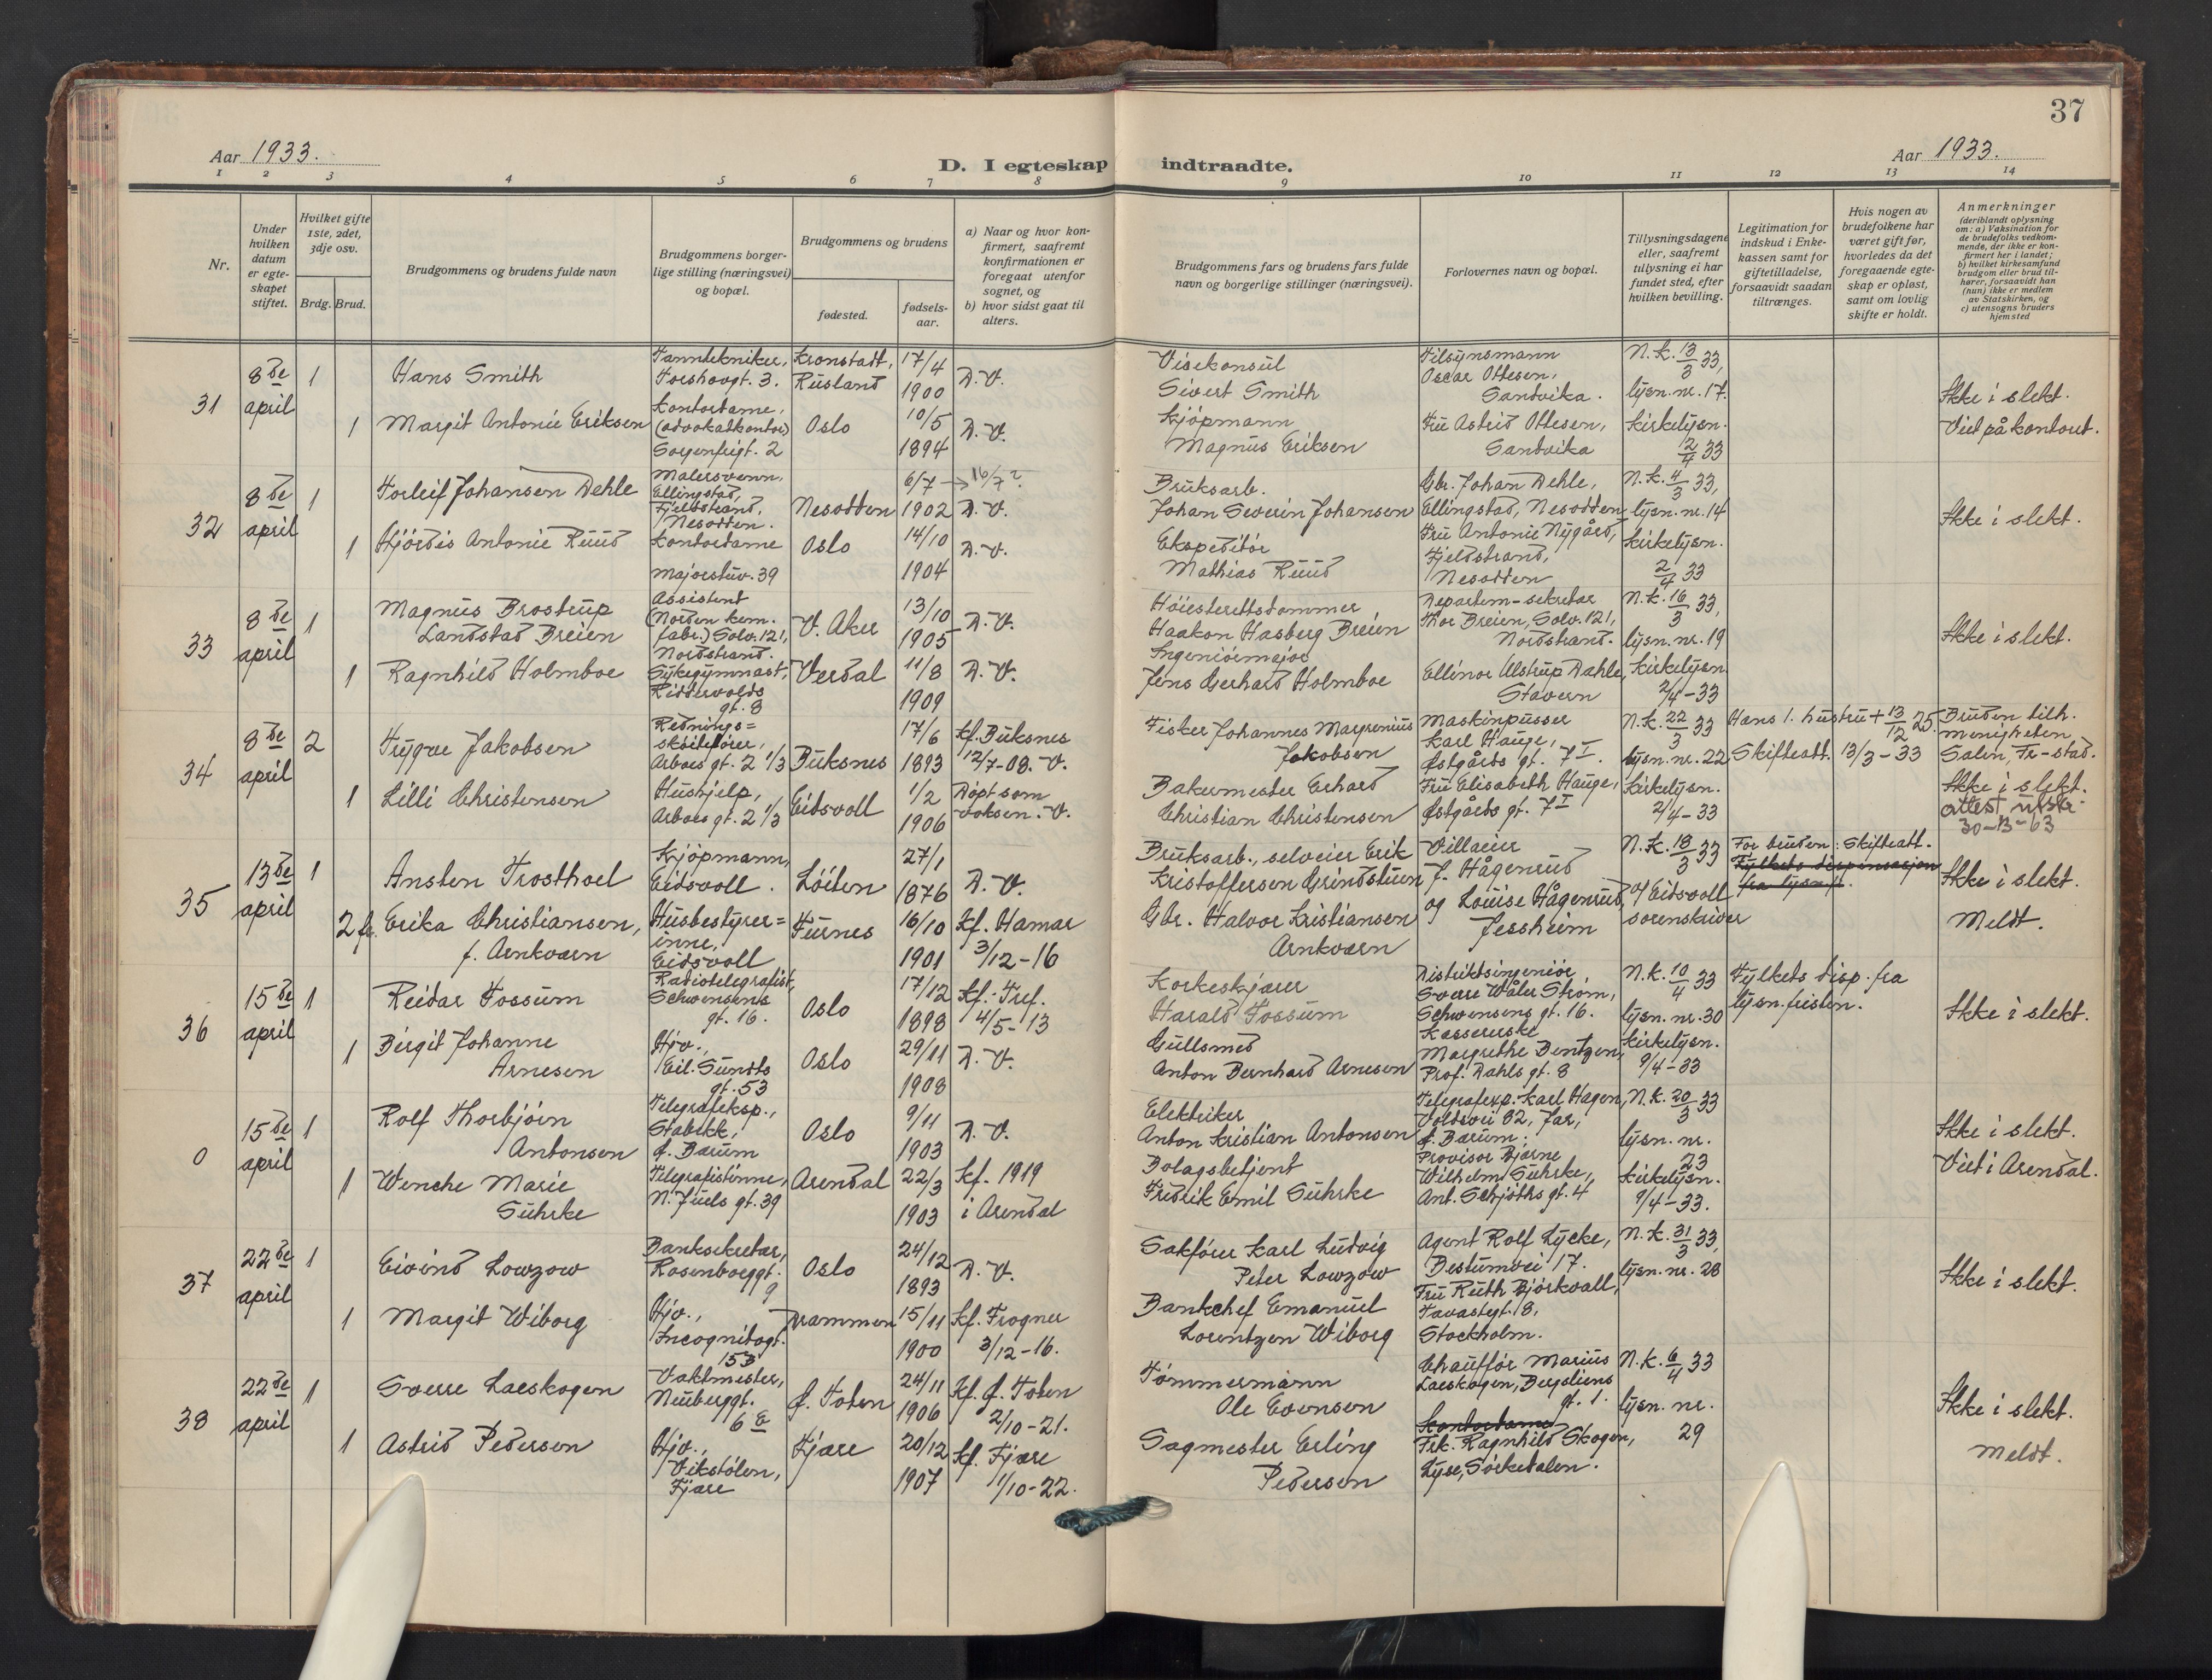 37
Aar 1933.
D. I egteskap indtraadte.
Aar 1933.
1 2 3 4 5 6 7 8 9 10 11 12 13 14
Nr.
Under hvilken datum er egteskapet stiftet.
Hvilket gifte 1ste, 2det, 3dje osv.
Brdg. Brud.
Brudgommens og brudens fulde navn
Brudgommens borgerlige stilling (næringsvei) og bopæl.
Brudgommens og brudens
fødested.
fødsels-aar.
a) Naar og hvor konfirmert, saafremt konfirmationen er foregaat utenfor sognet, og
b) hvor sidst gaat til alters.
Brudgommens fars og brudens fars fulde navn og borgerlige stillinger (næringsvei).
Forlovernes navn og bopæl.
Tillysningsdagene eller, saafremt tillysning ei har fundet sted, efter hvilken bevilling.
Legitimation for indskud i Enkekassen samt for giftetilladelse, forsaavidt saadan tiltrænges.
Hvis nogen av brudefolkene har været gift før, hvorledes da det foregaaende egteskap er opløst, samt om lovlig skifte er holdt.
Anmerkninger
(deriblandt oplysning om: a) Vaksination for de brudefolks vedkommende, der ikke er konfirmert her i landet; b) hvilket kirkesamfund brudgom eller brud tilhører, forsaavidt han (hun) ikke er medlem av Statskirken, og c) utensogns bruders hjemsted
31
8de april
1
Hans Smith
Tanntekniker, Toeshovgt. 3.
Kronstadt, Rusland
17/4 1900
D. V.
Visekonsul Sivert Smith
Tilsynsmann Oscar Ottesen, Sandvika.
N.K. 13/3 33, lysn. nr. 17.
Ikke i slekt.
1
Margit Antonie Eriksen
Kontordame, (advokatkontor) Sorgenfrigt. 2
Oslo
10/5 1894
D. V.
Kjøpmann Magnus Eriksen
Fru Astrid Ottesen, Sandvika
Kirkelysn. 2/4 33
Viet på kontoret.
32
8de april
1
Torleif Johansen Dehle
Malersvenn, Ellingstad, Fjellstrand, Nesodden.
Nesodden
6/7 → 16/7? 1902
D. V.
Bruksarb. Johan Severin Johansen
Gbr. Johan Dehle, Ellingstad, Nesodden
N.K. 4/3 33, lysn. nr. 14
Ikke i slekt.
1
Hjördis Antonie Ruud
Kontordame Majorstuv. 39
Oslo
14/10 1904
D. V.
Ekspeditör Mathias Ruud
Fru Antonie Nygård, Fjeldstrand, Nesodden
Kirkelysn. 2/4 33
33
8de april
1
Magnus Brostrup Landstad Breien
Assistent (Norden kem. fabr.) Solv. 121, Nordstrand.
V. Aker
13/10 1905
D. V.
Höiesterettsdommer Haakon Hasberg Breien
Departem-sekretær Thor Breien, Solv. 121, Nordstrand.
N.K. 16/3 33, lysn. nr. 19
Ikke i slekt.
1
Ragnhild Holmboe
Sykegymnast, Riddervolds gt. 8
Verdal
11/8 1909
D. V.
Ingeniörmajor Jens Gerhard Holmboe
Ellinor Alstrup Dahle, Stavern
Kirkelysn. 2/4-33
34
8de april
2
Trygve Jakobsen
Rednings=skoitefører, Arboes gt. 2 1/3
Buksnes
17/6 1893
kf. Buksnes 12/7-08. V.
Fisker Johannes Margrenius Jakobsen
Maskinpusser Karl Hauge, Østgårds gt. 7 I.
N.K. 22/3 33 lysn. nr. 22
Hans 1. hustru + 13/12 25. Skifteatt. 13/3-33
Bruden tilh. menigheten Salen, Fr-stad.
1
Lilli Christensen
Hushjelp, Arboes gt. 2 1/3
Eidsvoll
1/2 1906
Döpt som voksen. V.
Bakermester Erhard Christian Christensen
Fru Elisabeth Hauge, Østgårds gt. 7 I
Kirkelysn. 2/4-33
Ikke i slekt.
attest utste.
35
13de april
1
Ansten Trosthoel
Kjöpmann, Eidsvoll.
Löiten
27/1 1876
D. V.
Bruksarb., selveier Erik Kristoffersen Grindstuen
Villaeier J. Hågenrud
N.K. 18/3 33
For bruden: Skifteatt.
Fylkets dispensasjon fra lysn.
Ikke i slekt.
2 fr.
Erika Christiansen, f. Arnkværn
Husbestyrer=inne, Eidsvoll
Furnes
16/10 1901
Kf. Hamar 3/12-16
Gbr. Halvor Kristiansen Arnkværn
og Louise Hågenrud, Jessheim
v/ Eidsvoll sorenskriver
Meldt.
36
15de april
1
Reidar Fossum
Radiotelegrafist, Schwensens gt. 16.
Oslo
17/12 1898
Kf. Tref. 4/5-13
Korkeskjærer Harald Fossum
Distriktsingeniör Sverre Wåler Ström, Schwensens gt. 16.
N.K. 10/4 33 lysn. nr. 30
Fylkets disp. fra lysn.fristen.
Ikke i slekt.
1
Birgit Johanne Arnesen
Hjv., Eil. Sundts gt. 53
Oslo
29/11 1908
D. V.
Gullsmed Anton Bernhard Arnesen
Kassererske Margrethe Bentzen, Prof. Dahls gt. 8
Kirkelysn. 9/4-33
0
15de april
1
Rolf Thorbjörn Antonsen
Telegrafeksp., Stabekk, Ø. Bærum
Oslo
9/11 1903
D. V.
Elektriker Anton Kristian Antonsen
Telegrafexp. Karl Hagen, Voldsvei 82, Jar, Ø. Bærum.
N.K. 20/3 33 lysn. nr. 23
Ikke i slekt.
1
Wenche Marie Suhrke
Telegrafistinne, N. Juels gt. 39
Arendal
22/3 1903
kf. 1919 i Arendal
Bolagsbetjent Fridrik Emil Suhrke
Provisor Bjarne Wilhelm Suhrke, Ant. Schjöths gt. 4
Kirkelysn. 9/4-33.
Viet i Arendal.
37
22de april
1
Eivind Lowzow
Banksekretær, Rosenborggt. 9
Oslo
24/12 1893
D. V.
Sakförer Karl Ludvig Peter Lowzow
Agent Rolf Lycke, Bestumvei 17.
N.K. 31/3 33, lysn. nr. 28
Ikke i slekt.
1
Margit Wiborg
Hjv., Incognitogt. 15
Drammen
15/11 1900
kf. Frogner 3/12-16.
Bankchef Emanuel Lorentzen Wiborg
Fru Ruth Björkvall, Tavastgt. 8, Stockholm.
38
22de april
1
Sverre Laeskogen
Vaktmester, Neuberggt. 6 E
Ø. Toten
24/11 1906
Kf. Ø. Toten 2/10-21.
Tömmermann Ole Evensen
Chaufför Marius Laeskogen, Bergsliens gt. 1.
N.K. 6/4 33 lysn. nr. 29
Ikke i slekt.
1
Astrid Pedersen
Hjv., Vikstölen, Fjære
Fjære
20/12 1907
kf. Fjære 11/10-22.
Sagmester Erling Pedersen
Kontordame Frk. Ragnhild Skogen, Lyse, Sörkedalen.
Meldt.